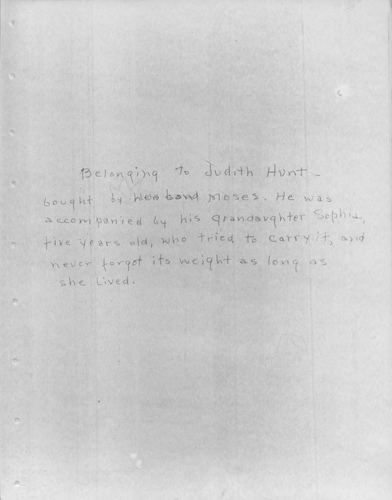 Belonging To Judith Hunt -
bought by Husband Moses. He was
accompanied by his grandaughter Sophia,
five years old, who tried to carry it, and
never forgot its weight as long as
she lived.